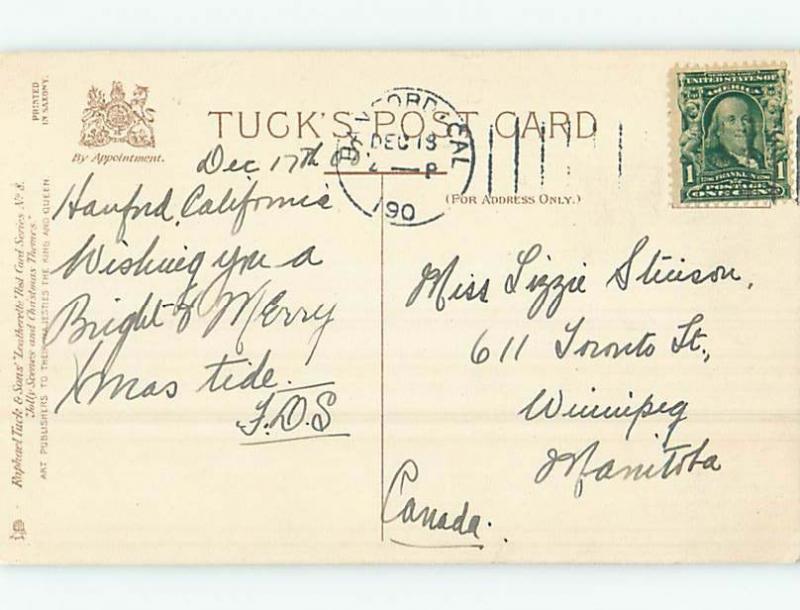 PRINTED
IN SAXONY.
By Appointment.
TUCK'S POST CARD
(FOR ADDRESS ONLY.)
HANFORD, CAL
DEC 18
P
190
SERIES 1902
UNITED STATES OF
AMERICA
1 1
FRANKLIN
POSTAGE
ONE CENT
Dec 17th
Hanford, California
Wishing you a
Bright & Merry
Xmas tide.
F.O.S
Miss Lizzie Stinson,
611 Toronto St.,
Winnipeg
Manitoba
Canada.
Raphael Tuck & Sons' "Leatherette" Post Card Series No 8.
"Jolly Scenes and Christmas Themes."
ART PUBLISHERS TO THEIR MAJESTIES THE KING AND QUEEN.